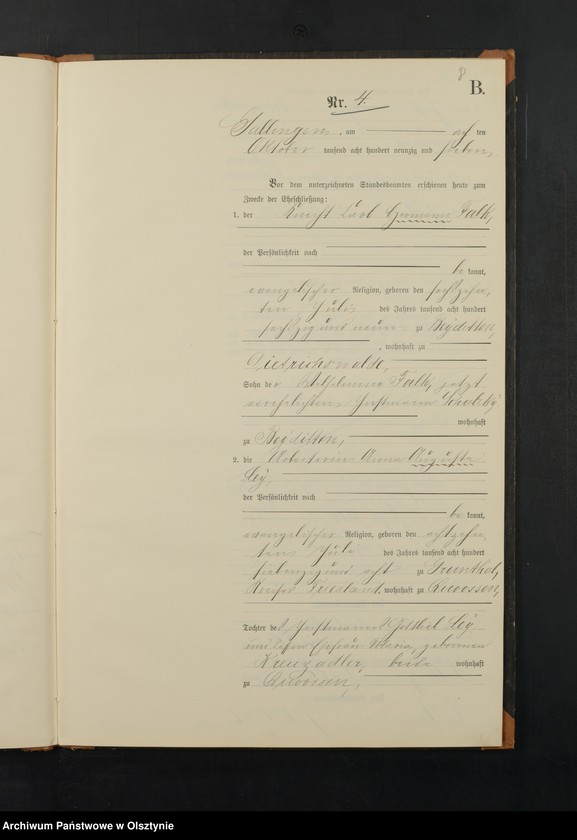 8
B.
Nr. 4.
am ten
Oktober tausend acht hundert neunzig und sieben.
Vor dem unterzeichneten Standesbeamten erschienen heute zum
Zwecke der Eheschließung:
1. der Carl Hermann Falk,
der Persönlichkeit nach
be kannt,
evangelischer Religion, geboren den sechzehn
ten Juli des Jahres tausend acht hundert
sechzig und neun zu
, wohnhaft zu
Dietrichswalde,
Sohn der Wilhelmine Falk, jetzt
verehelichten
wohnhaft
zu
2. die Anna Auguste
Ley,
der Persönlichkeit nach
be kannt,
evangelischer Religion, geboren den achtzehn
ten Juli des Jahres tausend acht hundert
siebenzig und acht zu Grünthal,
Kreises Friedland, wohnhaft zu Quoossen,
Tochter des Instmanns Gottlieb Ley
und dessen Ehefrau geborenen
Kreuzadler, beide wohnhaft
zu Quoossen,
Archiwum Państwowe w Olsztynie